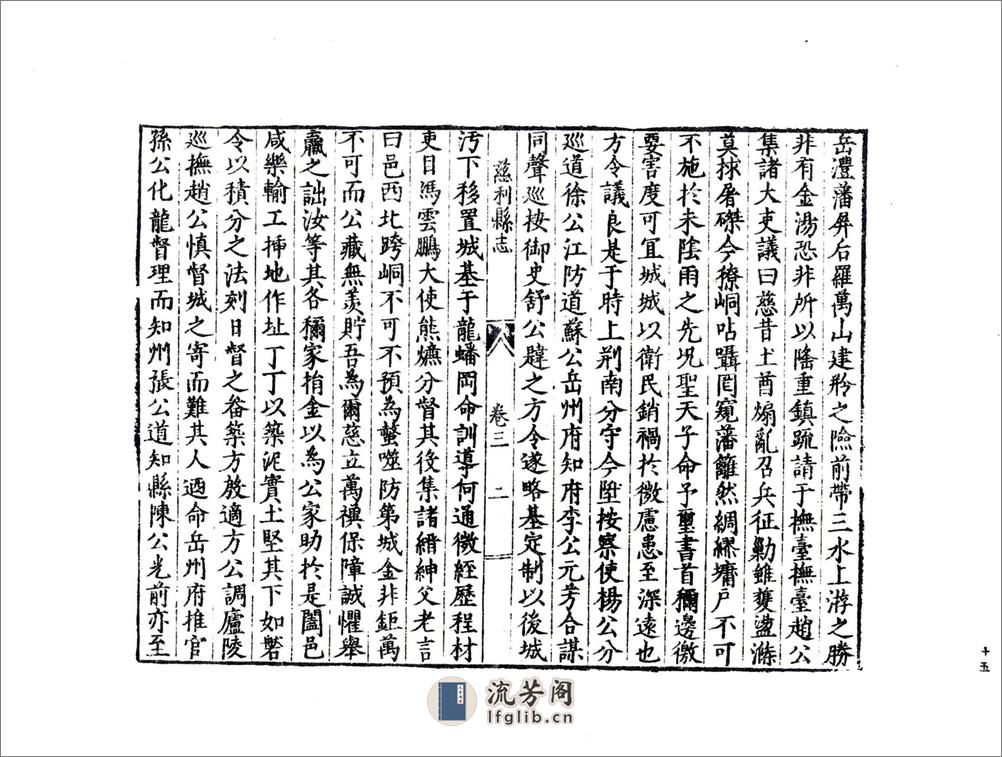 岳澧藩屏右羅萬山建瓴之險前帶三水上游之勝
非有金湯恐非所以隆重鎮疏請于撫臺撫臺趙公
集諸大吏議曰慈昔土酋煽亂召兵征勦雖獲盪滌
莫捄屠磔今獠峒呫囁罔窺藩籬然綢繆墉戶不可
不施於未陰雨之先况聖天子命予璽書首彌邊徼
要害度可冝城城以衛民銷禍於微慮患至深遠也
方令議良是于時上荆南分守今陞按察使楊公分
巡道徐公江防道蘇公岳州府知府李公元芳合謀
同聲巡按御史舒公韙之方令遂略基定制以後城
慈利縣志
卷三
二
汚下移置城基于龍蟠岡命訓導何通徵經歷程材
吏目馮雲鵬大使熊爊分督其後集諸縉紳父老言
曰邑西北跨峒不可不預為螫噬防第城金非鉅萬
不可而公藏無羨貯吾為爾慈立萬禩保障誠懼舉
羸之詘汝等其各稱家捐金以為公家助於是闔邑
咸樂輸工揷地作址丁丁以築泥實土堅其下如磐
令以積分之法刻日督之畚築方殷適方公調廬陵
巡撫趙公慎督城之寄而難其人迺命岳州府推官
孫公化龍督理而知州張公道知縣陳公光前亦至
十五
流芳阁
lfglib.cn